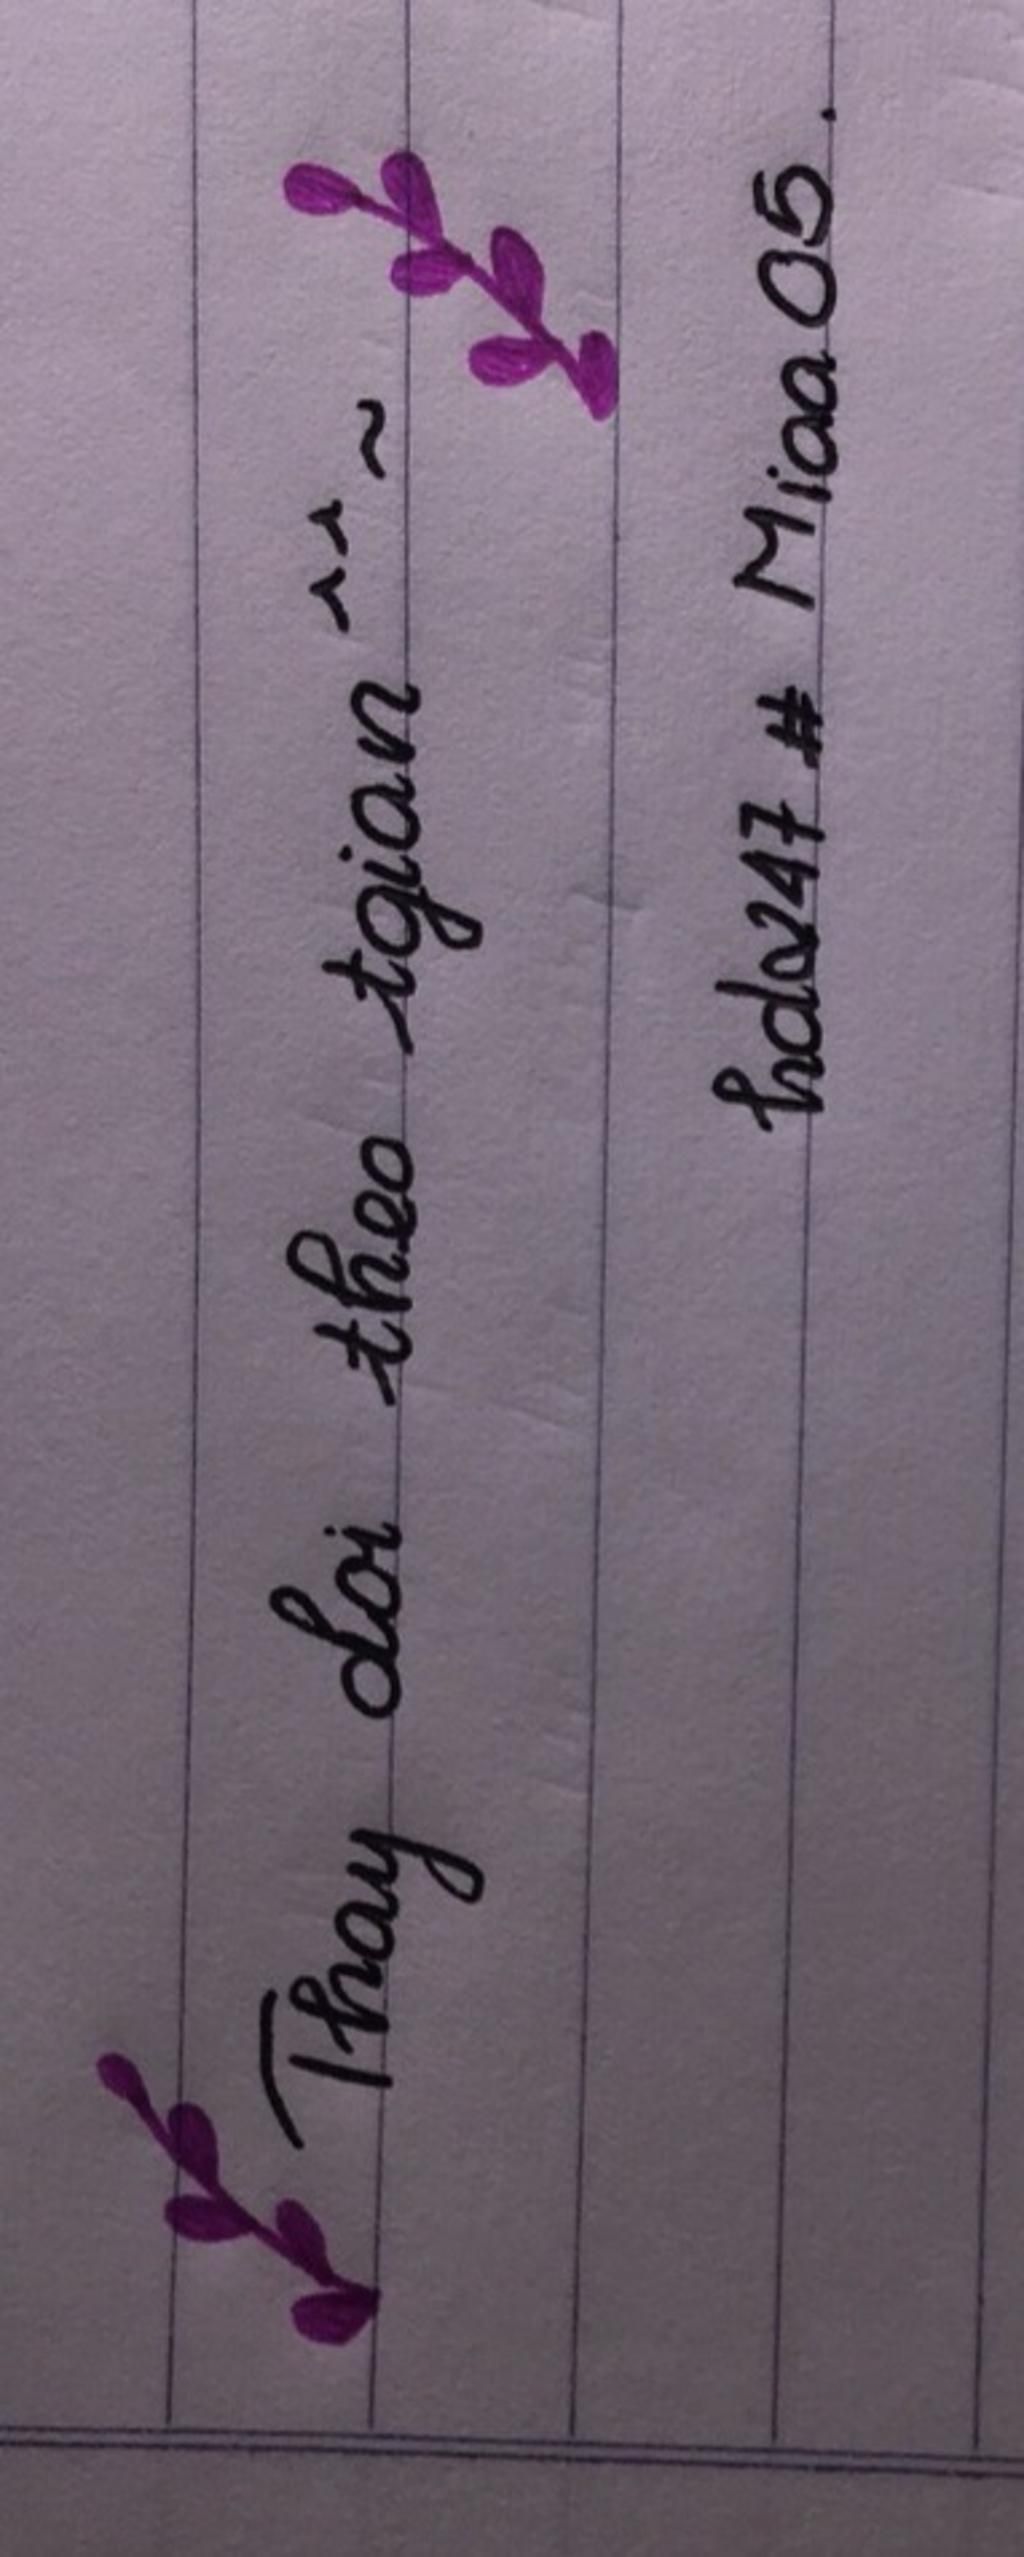 Thay doi theo tgian ^^~
hda247 # Miaa05.